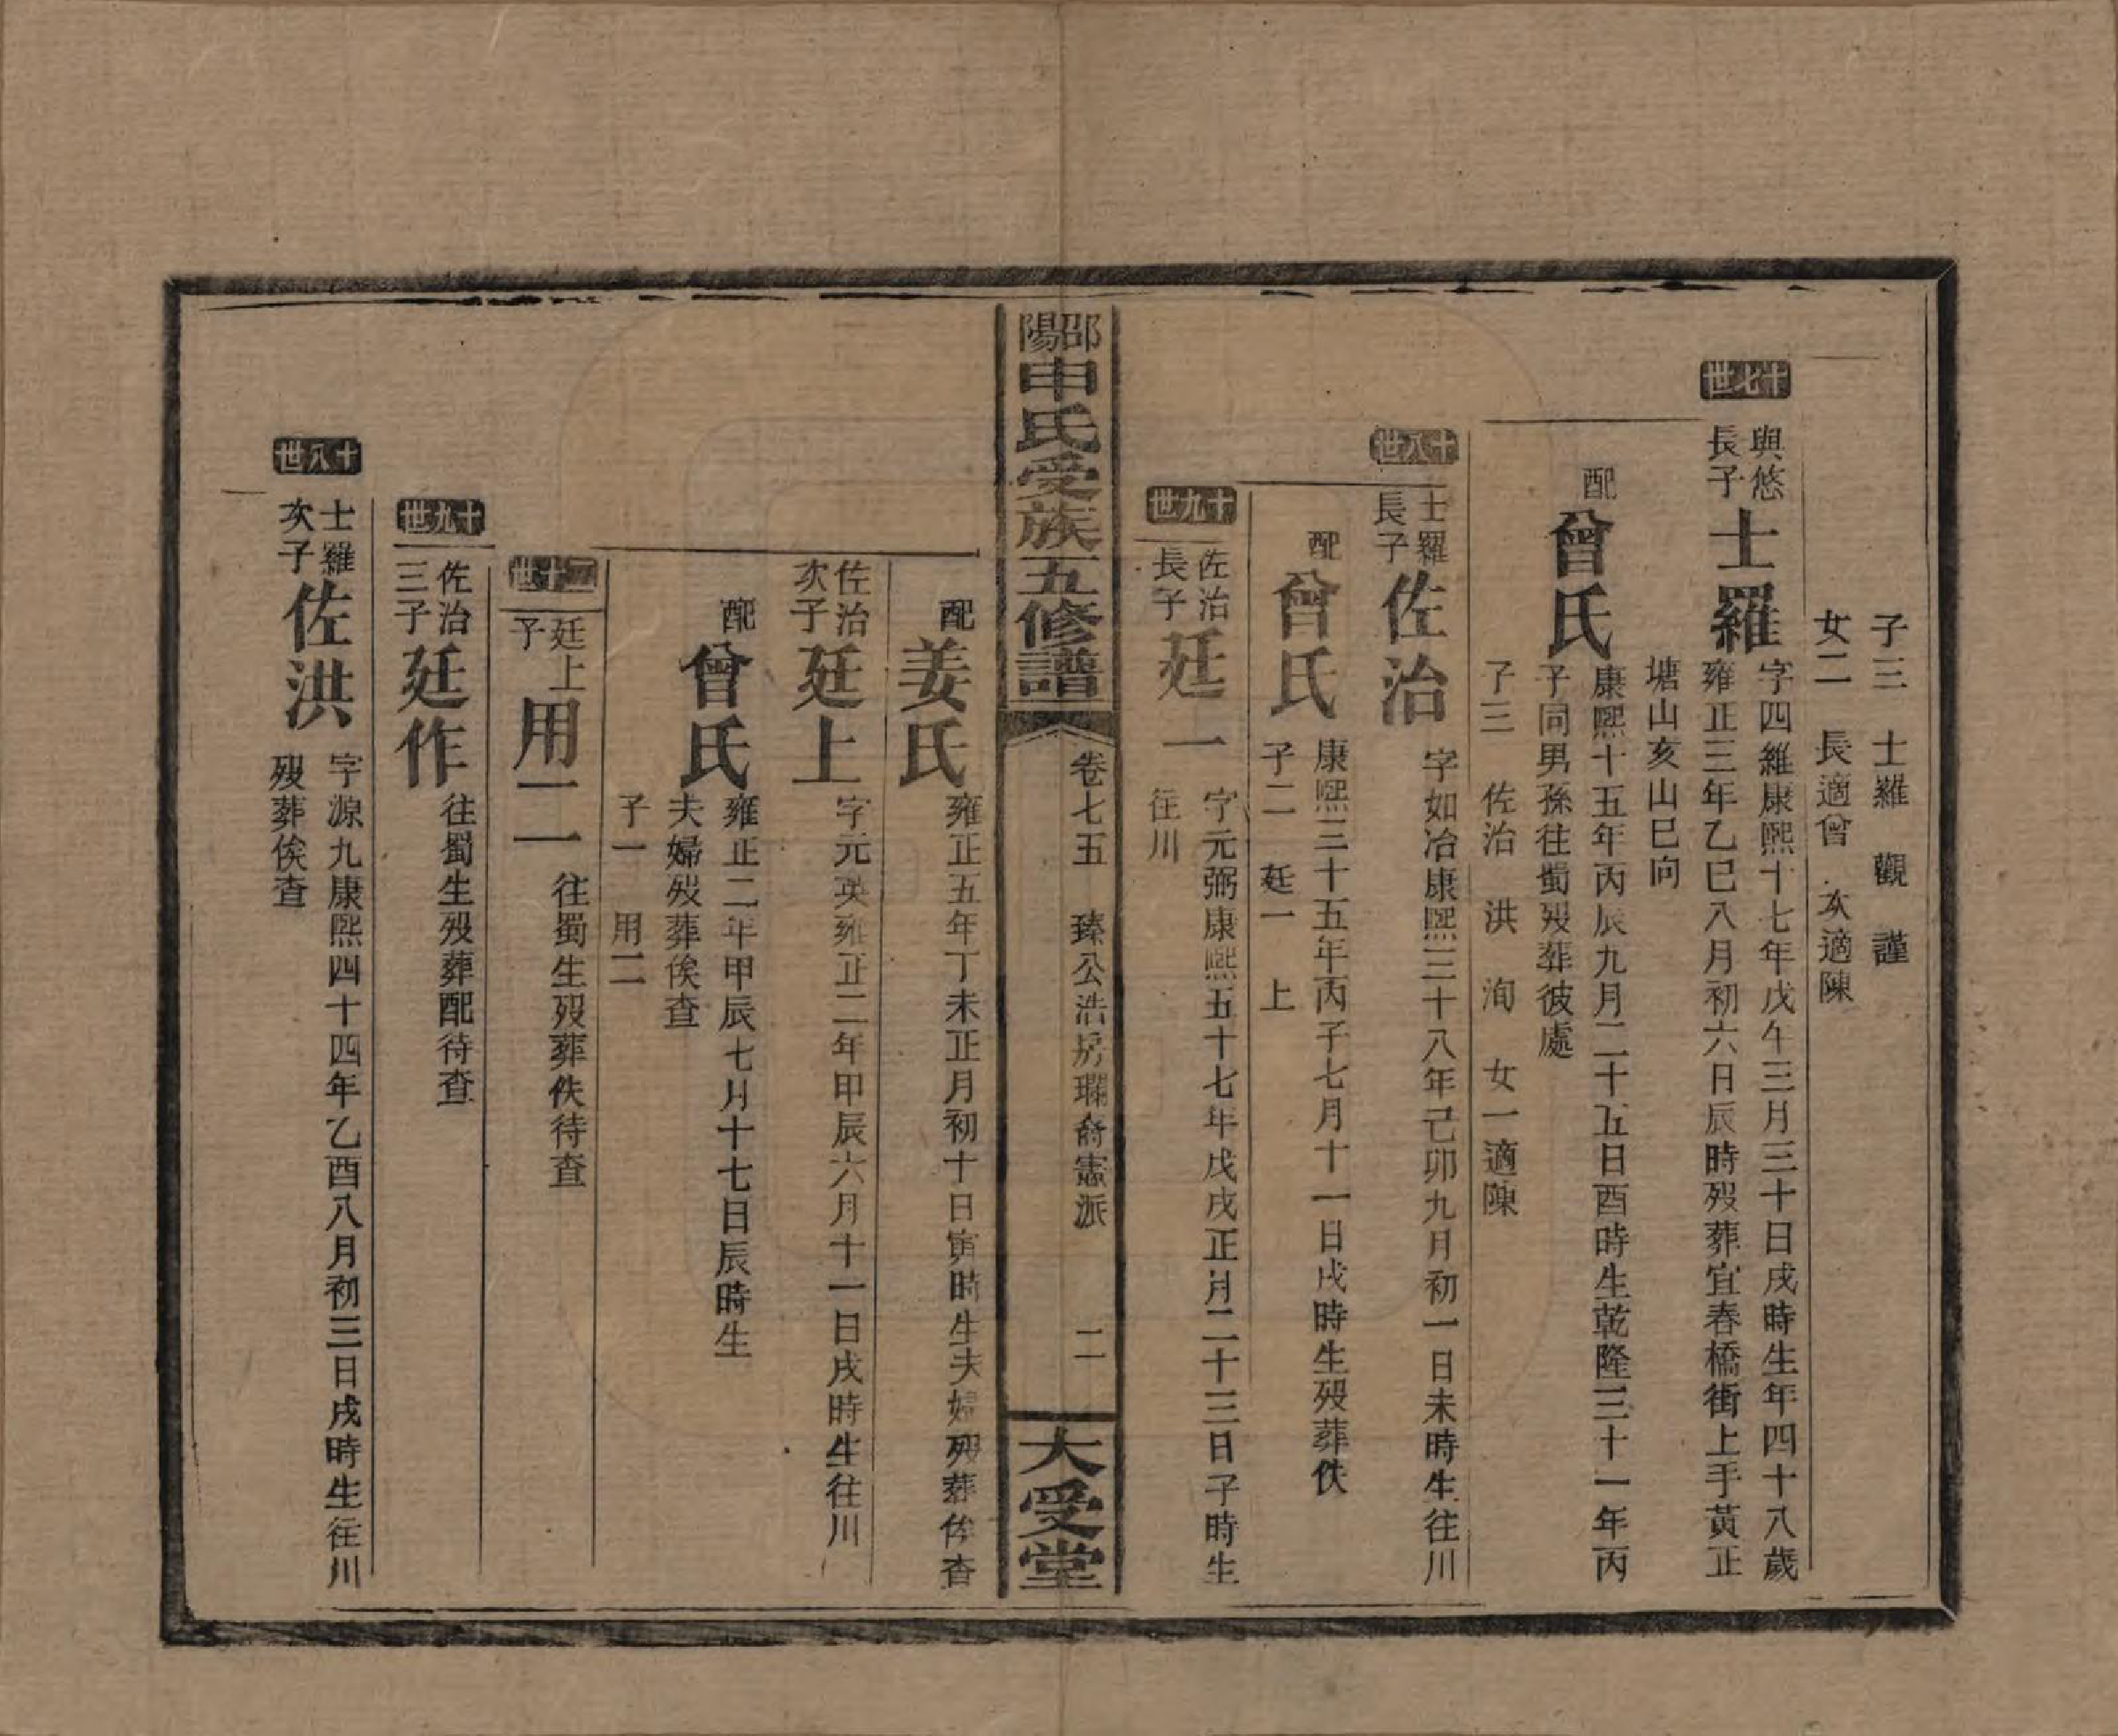 子三　士羅　觀　謹
女二　長適曾　次適陳
十七世
與悠長子
士羅
字四維康熙十七年戊午三月三十日戌時生年四十八歲
雍正三年乙巳八月初六日辰時歿葬宜春橋街上手黃正
塘山亥山巳向
配
曾氏
康熙十五年丙辰九月二十五日酉時生乾隆三十一年丙
子同男孫往蜀歿葬彼處
子三　佐治　洪　洵　女一適陳
十八世
士羅長子
佐治
字如冶康熙三十八年己卯九月初一日未時生往川
配
曾氏
康熙三十五年丙子七月十一日戌時生歿葬佚
子二　廷一　上
十九世
佐治長子
廷一
字元弼康熙五十七年戊戌正月二十三日子時生
往川
邵陽申氏受族五修譜
卷七五　臻公浩房瓓裔憲派　二
大受堂
配
姜氏
雍正五年丁未正月初十日寅時生夫婦歿葬俟查
佐治次子
廷上
字元英雍正二年甲辰六月十一日戌時生往川
配
曾氏
雍正二年甲辰七月十七日辰時生
夫婦歿葬俟查
子一　用二
二十世
廷上子
用二
往蜀生歿葬佚待查
十九世
佐治三子
廷作
往蜀生歿葬配待查
十八世
士羅次子
佐洪
字源九康熙四十四年乙酉八月初三日戌時生往川
歿葬俟查